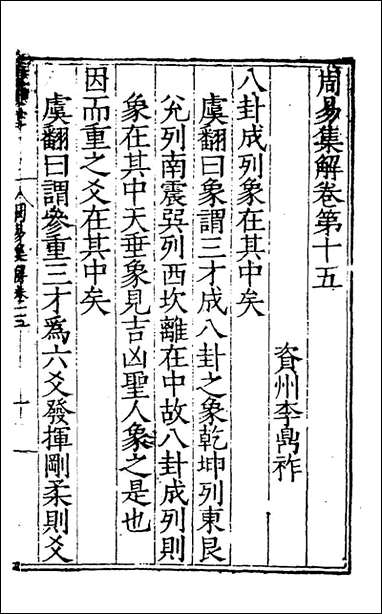 周易集解卷第十五
資州李鼎祚
八卦成列象在其中矣
虞翻曰象謂三才成八卦之象乾坤列東艮
兌列南震巽列西坎離在中故八卦成列則
象在其中天垂象見吉凶聖人象之是也
因而重之爻在其中矣
虞翻曰謂參重三才爲六爻發揮剛柔則爻
周易集解卷十五
一